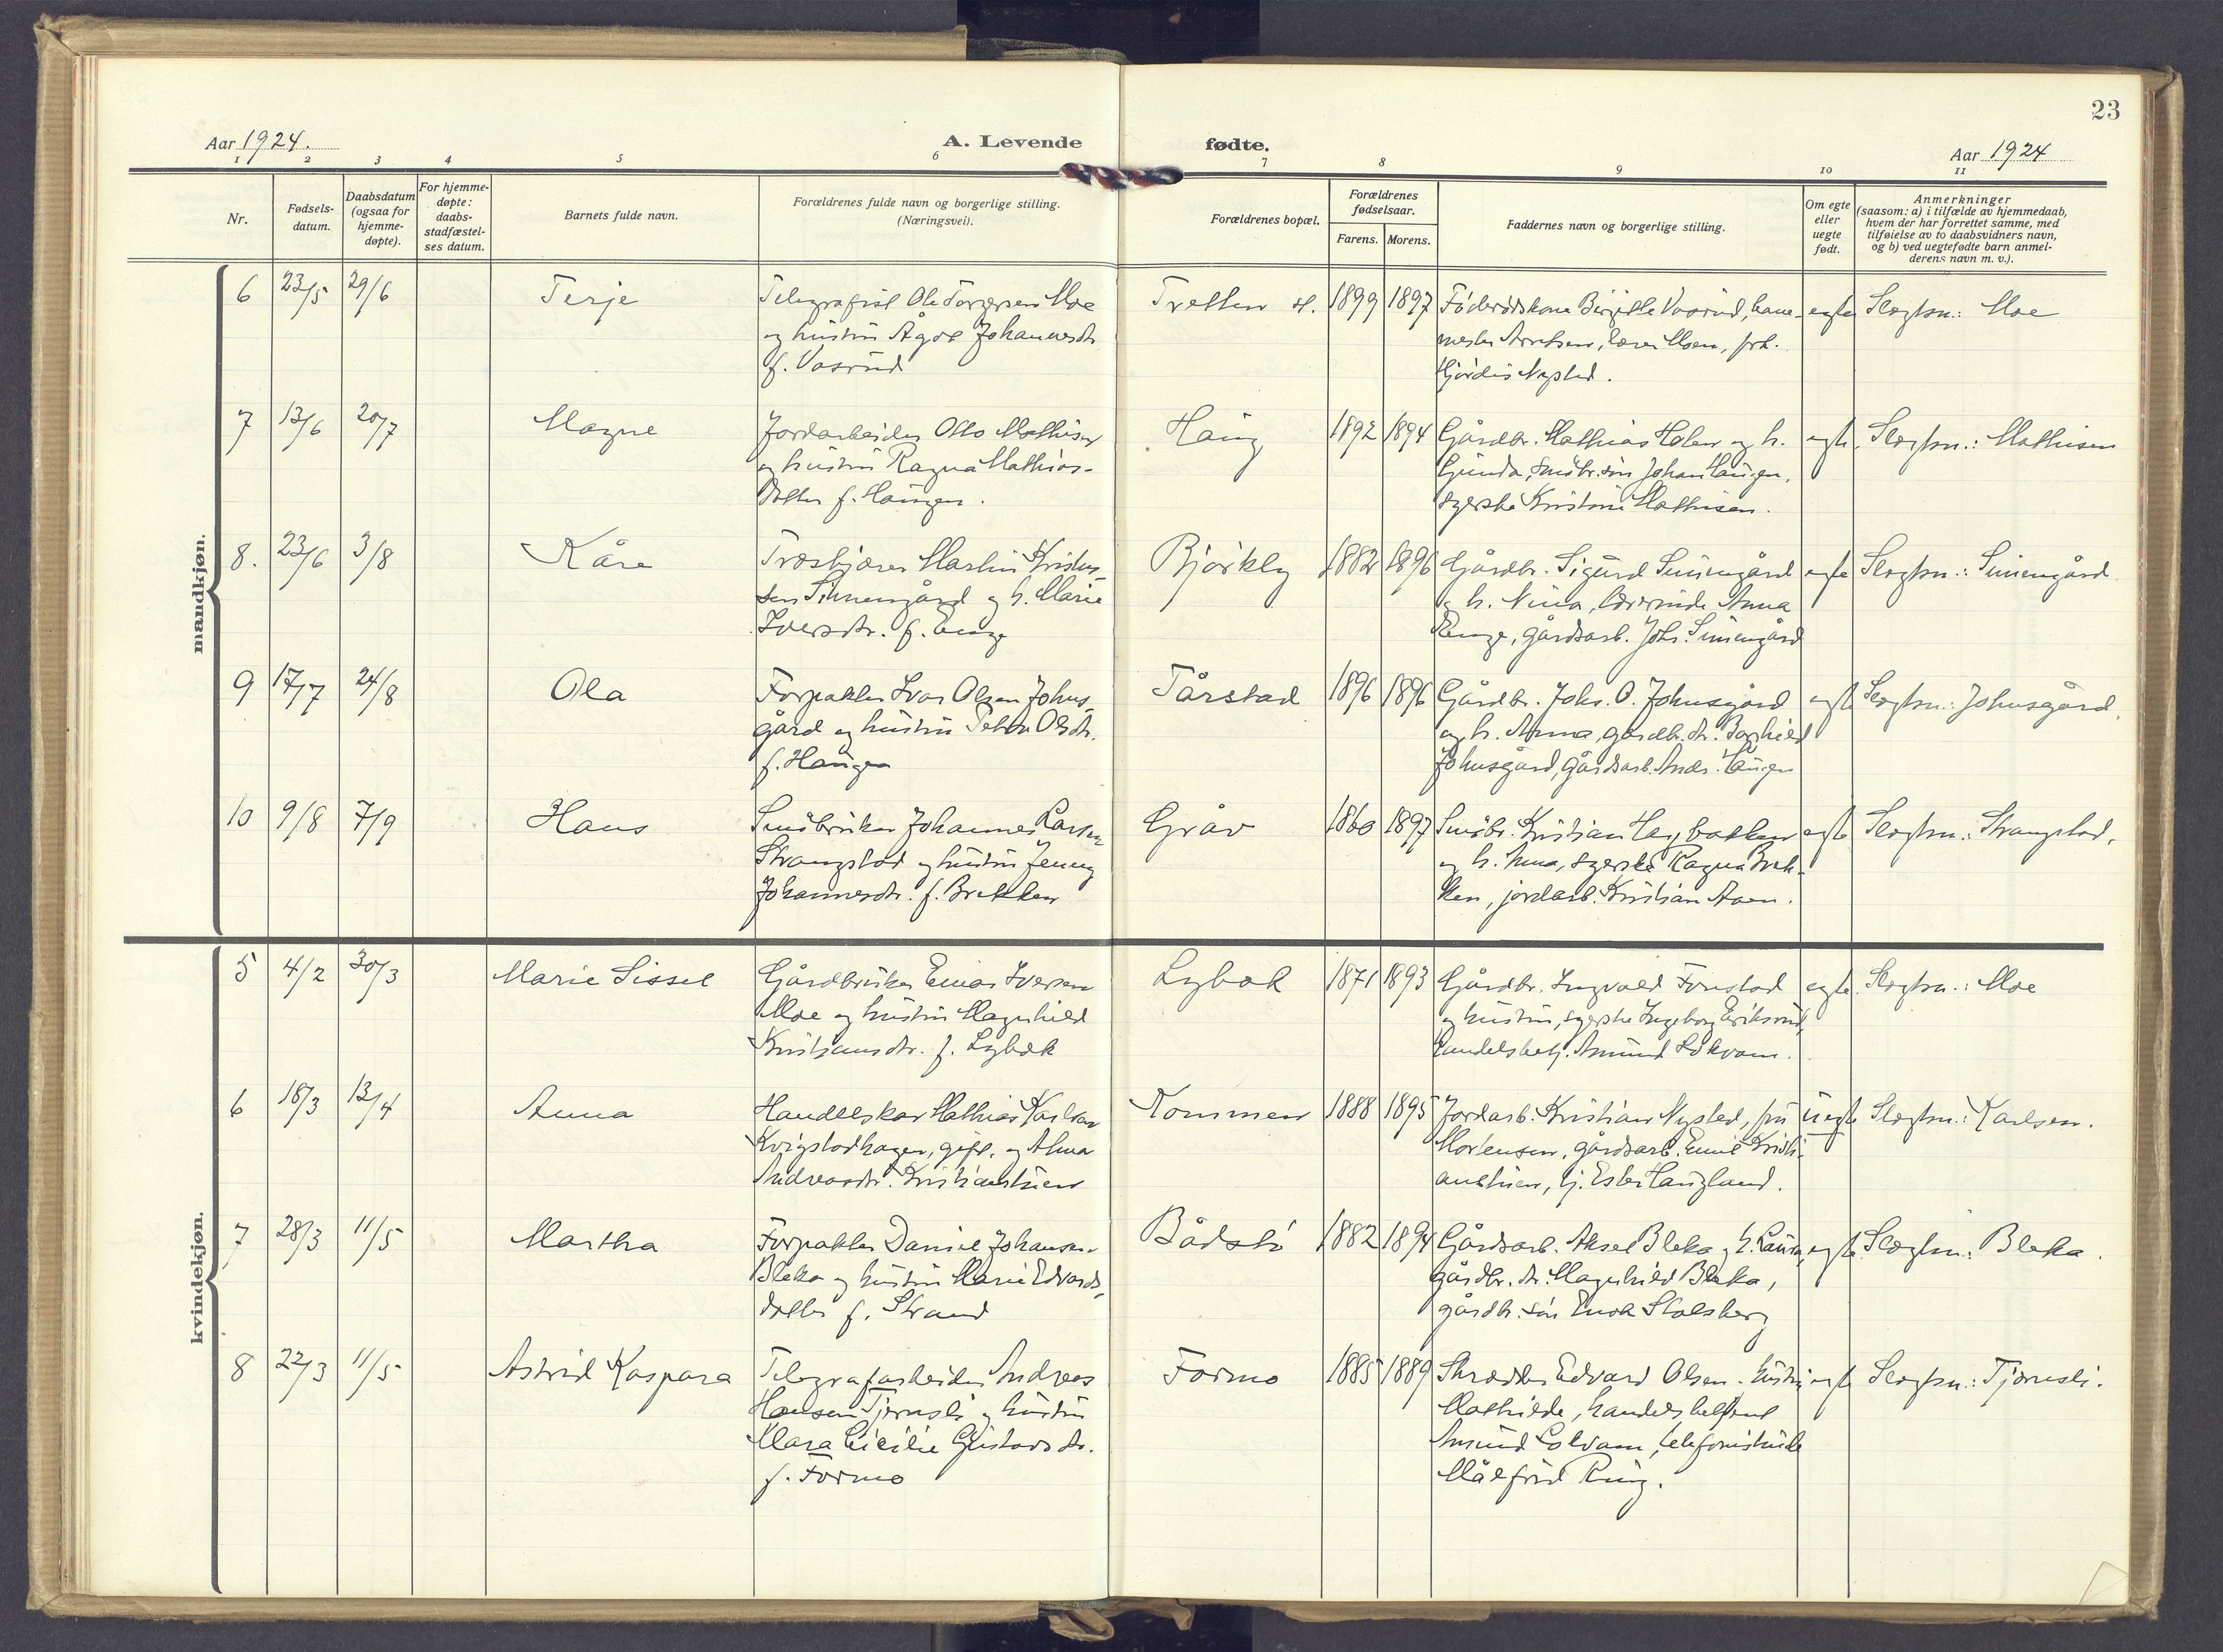 23
Aar 1924.
A. Levende fødte.
Aar 1924
1 2 3 4 5 6 7 8 9 10 11
Nr.
Fødsels-
datum.
Daabsdatum
(ogsaa for
hjemme-
døpte).
For hjemme-
døpte:
daabs-
stadfæstel-
ses datum.
Barnets fulde navn.
Forældrenes fulde navn og borgerlige stilling.
(Næringsvei).
Forældrenes bopæl.
Forældrenes
fødselsaar.
Farens. Morens.
Faddernes navn og borgerlige stilling.
Om egte
eller
uegte
født.
Anmerkninger
(saasom: a) i tilfælde av hjemmedaab,
hvem der har forrettet samme, med
tilføielse av to daabsvidners navn,
og b) ved uegtefødte barn anmel-
derens navn m. v.).
mandkjøn.
6 23/5 29/6 Terje
Telegrafist Ole Torgersen Moe
og hustru Ågot Johannesdtr.
f. Vasrud
Tretten st. 1899 1897
Föderådskone Birgitte Vasrud, bane-
mester Arntsen, Moen, frk.
Hjördis Nysted.
egte Slegtsn.: Moe
7 13/6 20/7 Magne
Jordarbeider Otto Mathisen
og hustru Ragna Mathias-
datter f. Haugen.
Haug 1892 1894
Gårdbr. Mathias Holen og h.
Gunda, småbr. sön Johan Haugen,
syerske Kristine Mathisen.
egte Slegtsn.: Mathisen
8. 23/6 3/8 Kåre
Træskjærer Martin Kristus-
sen Simengård og h. Marie
Iversdtr. f. Enge
Björkly 1882 1896
Gårdbr. Sigurd Simengård
og h. Nina, lærerinde Anna
Enge, gårdsarb. Johs. Simengård
egte Slegtsn.: Simengård
9 17/7 24/8 Ola
Forpakter Ivar Olsen Johns-
gård og hustru Petra Olsdtr.
f. Haugen
Tårstad 1896 1896
Gårdbr. Johs. O. Johnsgård
og h. Anna, gårdbr. dtr. Borghild
Johnsgård, gårdsarb. Andr. Haugen
egte Slegtsn.: Johnsgård.
10 9/8 7/9 Hans
Småbruker Johannes Larsen
Strangstad og hustru Jenny
Johannesdtr. f. Brekken
Gråv 1860 1897
Småbr. Kristian Haybakken
og h. Anna, syerske Ragna Brek-
ken, jordarb. Kristian Aaen.
egte Slegtsn.: Strangstad.
kvindekjøn.
5 4/2 30/3 Marie Sissel
Gårdbruker Einar Iversen
Moe og hustru Magnhild
Kristiansdtr. f. Lybæk
Lybæk 1871 1893
Gårdbr. Ingvald Forestad
og hustru, syerske Ingeborg Eriksrud,
handelsbetj. Amund Lökvam.
egte Slegtsn.: Moe
6 18/3 13/4 Anna
Handelskar Mathias Karlsen
Kvigstadhagen, gift, og Alma
Andreasdtr. Kristianstuen
Kommen 1888 1895
Jordarb. Kristian Nysted, fru
Mortensen, gårdsarb. Emil Kristi-
anstuen, tj. Ester Haugland.
uegte Slegtsn.: Karlsen.
7 28/3 11/5 Martha
Forpakter Daniel Johansen
Bleka og hustru Marie Edvards-
datter f. Strand
Bådstö 1882 1894
Gårdsarb. Aksel Bleka og h. Laura,
gårdbr. dtr. Magnhild Bleka,
gårdbr. sön Enok Stalsberg
egte Slegtsn.: Bleka.
8 22/3 11/5 Astrid Kaspara
Telegrafarbeider Andreas
Hansen Tjernsli og hustru
Mara Cicilie Gustavsdtr.
f. Formo
Formo 1885 1889
Skrædder Edvard Olsen, hustru
Mathilde, handelsbetjent
Amund Lökvam, telefonistinde
Målfrid Ring.
egte Slegtsn.: Tjernsli.